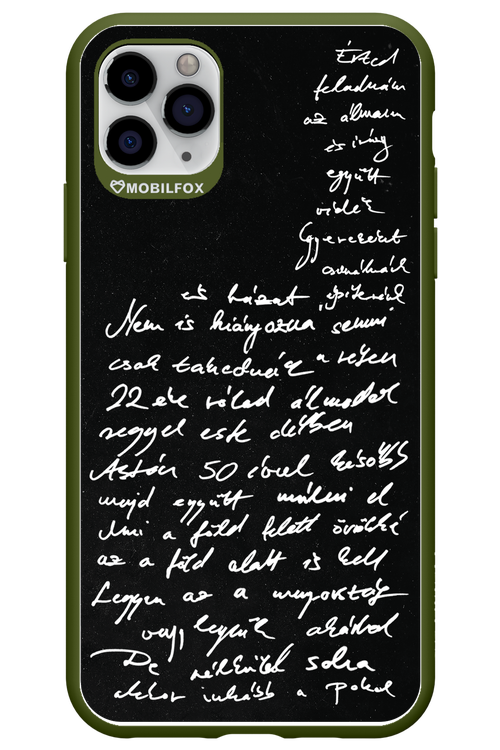 MOBILFOX
Érted
feladnám
az álmaim
és irány
együtt
vidék
Gyerekeket
csinálnánk
és házat építenék
Nem is hiányozna semmi
csak takednék a réten
22 éve rólad álmodok
reggel este délben
Aztán 50 évvel később
majd együtt múlni el
Ami a föld felett örökké
az a föld alatt is kell
Legyen az a mennyország
vagy legyünk akárhol
De nélküled soha
akkor inkább a pokol